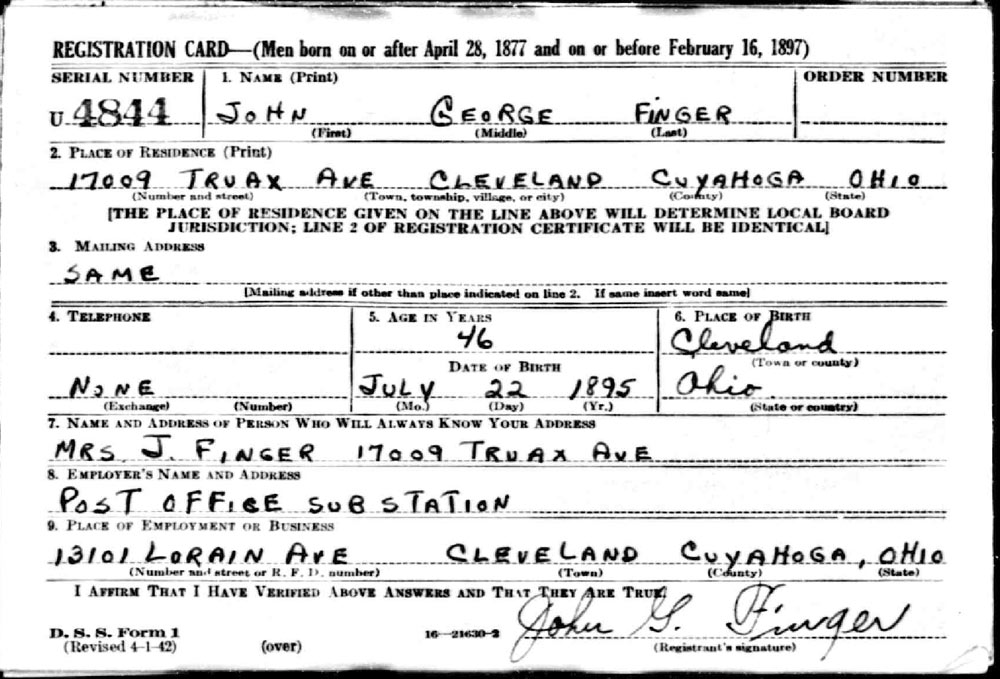 REGISTRATION CARD—(Men born on or after April 28, 1877 and on or before February 16, 1897)
SERIAL NUMBER 1. NAME (Print) ORDER NUMBER
U 4844 JOHN GEORGE FINGER
(First) (Middle) (Last)
2. PLACE OF RESIDENCE (Print)
17009 TRUAX AVE CLEVELAND CUYAHOGA OHIO
(Number and street) (Town, township, village, or city) (County) (State)
[THE PLACE OF RESIDENCE GIVEN ON THE LINE ABOVE WILL DETERMINE LOCAL BOARD
JURISDICTION; LINE 2 OF REGISTRATION CERTIFICATE WILL BE IDENTICAL]
3. MAILING ADDRESS
SAME
[Mailing address if other than place indicated on line 2. If same insert word same]
4. TELEPHONE 5. AGE IN YEARS 6. PLACE OF BIRTH
46 Cleveland
DATE OF BIRTH (Town or county)
NONE JULY 22 1895 Ohio
(Exchange) (Number) (Mo.) (Day) (Yr.) (State or country)
7. NAME AND ADDRESS OF PERSON WHO WILL ALWAYS KNOW YOUR ADDRESS
MRS. J. FINGER 17009 TRUAX AVE
8. EMPLOYER'S NAME AND ADDRESS
POST OFFICE SUB STATION
9. PLACE OF EMPLOYMENT OR BUSINESS
13101 LORAIN AVE CLEVELAND CUYAHOGA, OHIO
(Number and street or R. F. D. number) (Town) (County) (State)
I AFFIRM THAT I HAVE VERIFIED ABOVE ANSWERS AND THAT THEY ARE TRUE
D. S. S. Form 1 16—21630-2 John G. Finger
(Revised 4-1-42) (over) (Registrant's signature)